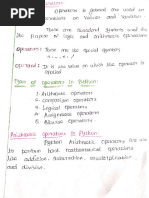 operators is general are used to
operations on Values and Variables
These are Standard Symbols used for
purpose of logic and Arithmetic operations
Operators: These are the special Symbols
Operand: It is the value on which the operator is
applied
Types of operators in Python:
1. Arithmetic operators
2. Comparison operators
3. Logical operators
4. Assignment operators
5. Bitwise operators
Arithmetic Operators in Python
Python Arithmetic operators are
to perform basic mathematical operations
like addition, Subtraction, multiplication
and division